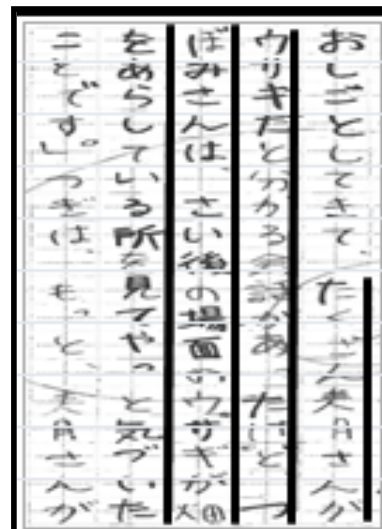 おしごとしてきて、たくさん美月さんが
ウサギだと分かる会話があったけど、つ
ぼみさんは、さい後の場面のウサギが大の
をあらしている所を見てやっと気づいた
ことです。つぎは、もっと、美月さんが